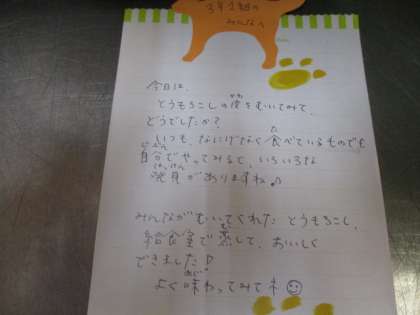 3年1組の
みんなへ
今日は、
とうもろこしの皮をむいてみて、
かわ
どうでしたか？
いつも、なにげなく食べているものでも
た
自分でやってみると、いろいろな
じぶん
発見がありますね♪
はっけん
みんながむいてくれた とうもろこし、
給食室で蒸して、おいしく
む
できました♪
よく味わってみてネ☺
あじ